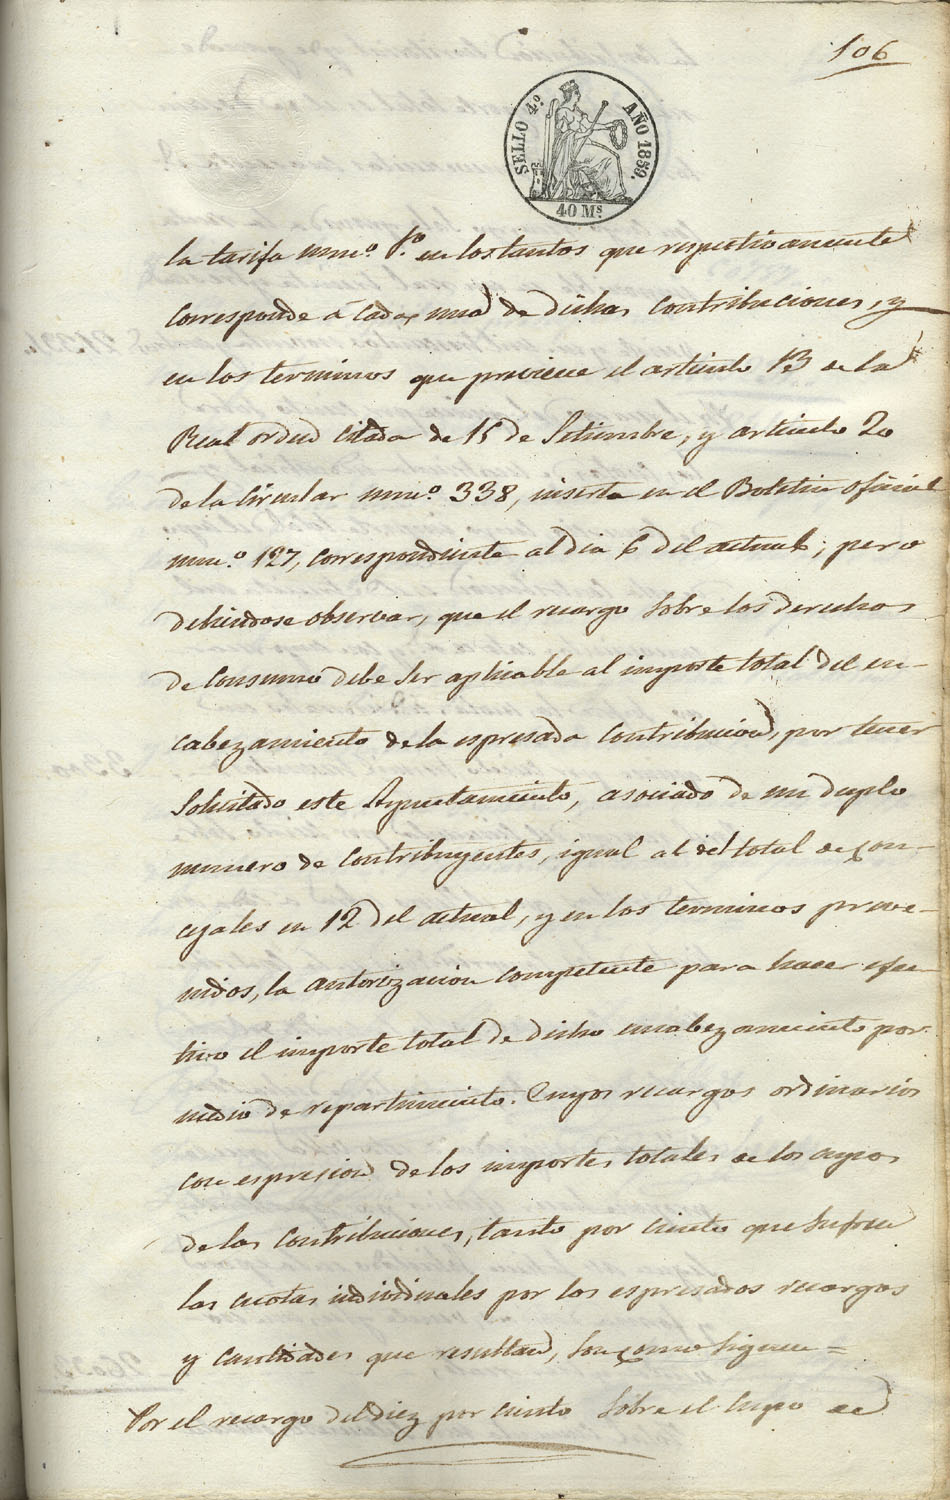 106
SELLO 4.º AÑO 1859.
40 Ms
la tarifa num.º 1.º en los tantos que respectivamente
corresponde á cada una de dichas contribuciones, y
en los terminos que previene el articulo 13 de la
Real orden citada de 15 de Setiembre, y articulo 20
de la Circular num.º 338, inserta en el Boletin oficial
num.º 127, correspondiente al dia 6 del actual; pero
debiendose observar, que el recargo sobre los derechos
de consumo debe ser aplicable al importe total del en-
cabezamiento de la espresada contribucion, por tener
solicitado este Ayuntamiento, asociado de un duplo
numero de contribuyentes, igual al del total de con-
cejales en 12 del actual, y en los terminos preve-
nidos, la autorizacion competente para hacer efec-
tivo el importe total de dicho encabezamiento por
medio de repartimiento. Cuyos recargos ordinarios
con espresion de los importes totales de los cupos
de las contribuciones, tanto por ciento que sufren
las cuotas individuales por los espresados recargos
y cantidades que resultan, son como siguen =
Por el recargo del diez por ciento sobre el cupo de